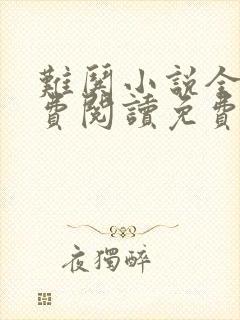 難關小說全
費閱讀免費
夜獨醉